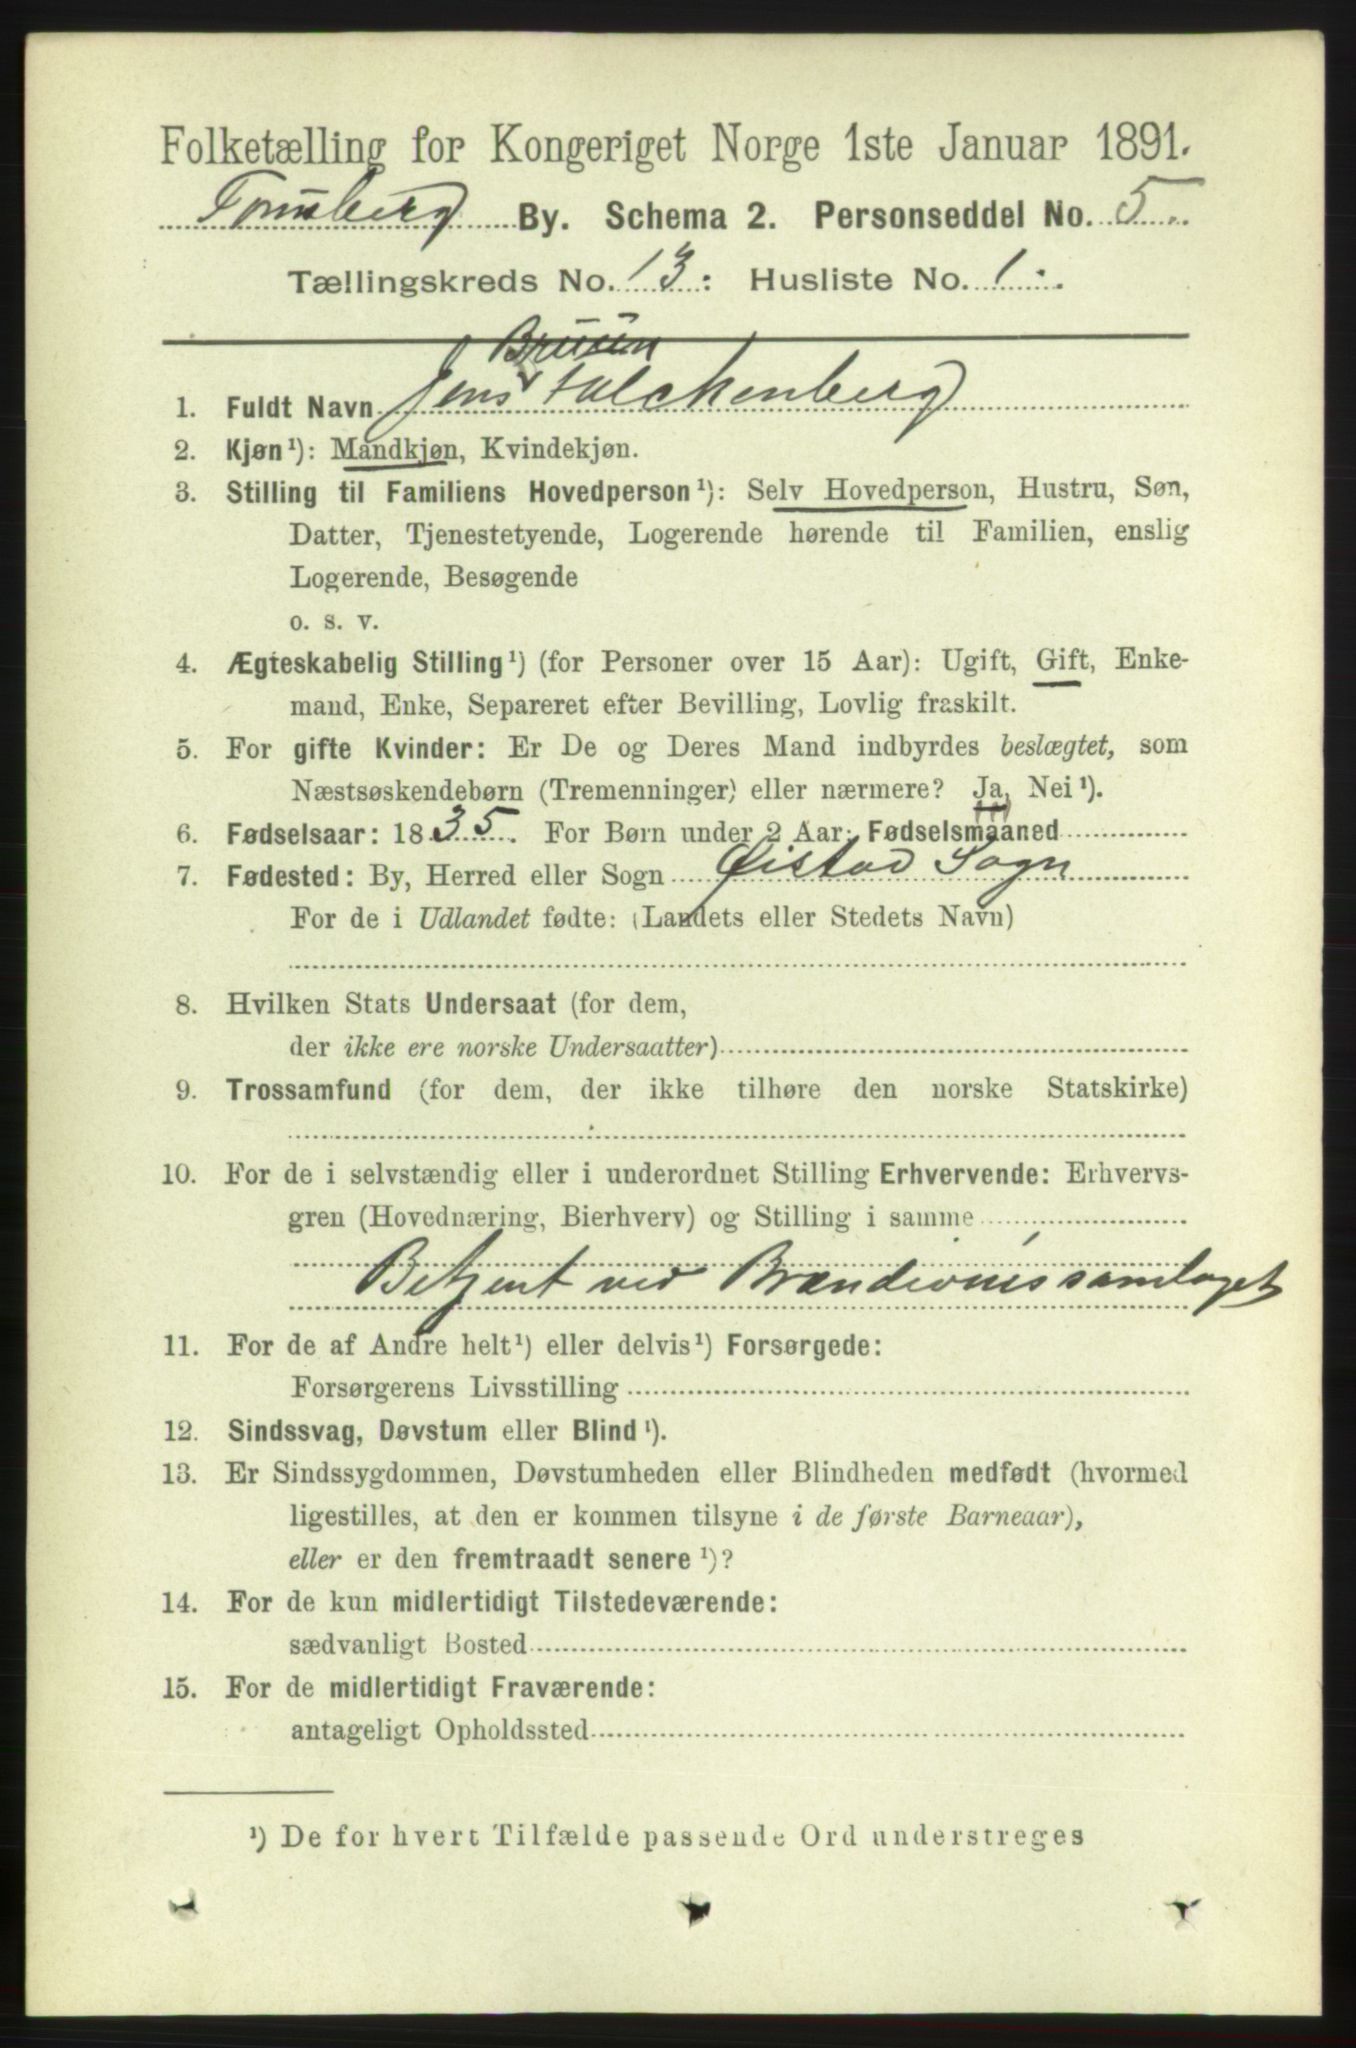 Folketælling for Kongeriget Norge 1ste Januar 1891.
Tønsberg By. Schema 2. Personseddel No. 5.
Tællingskreds No. 13: Husliste No. 1.
Bruun
1. Fuldt Navn Jens Falckenberg
2. Kjøn¹): Mandkjøn, Kvindekjøn.
3. Stilling til Familiens Hovedperson¹): Selv Hovedperson, Hustru, Søn,
Datter, Tjenestetyende, Logerende hørende til Familien, enslig
Logerende, Besøgende
o. s. v.
4. Ægteskabelig Stilling¹) (for Personer over 15 Aar): Ugift, Gift, Enke-
mand, Enke, Separeret efter Bevilling, Lovlig fraskilt.
5. For gifte Kvinder: Er De og Deres Mand indbyrdes beslægtet, som
Næstsøskendebørn (Tremenninger) eller nærmere? Ja, Nei¹).
6. Fødselsaar: 1835. For Børn under 2 Aar: Fødselsmaaned
7. Fødested: By, Herred eller Sogn Øistad Sogn
For de i Udlandet fødte: (Landets eller Stedets Navn)
8. Hvilken Stats Undersaat (for dem,
der ikke ere norske Undersaatter)
9. Trossamfund (for dem, der ikke tilhøre den norske Statskirke)
10. For de i selvstændig eller i underordnet Stilling Erhvervende: Erhvervs-
gren (Hovednæring, Bierhverv) og Stilling i samme
Betjent ved Brændevinssamlaget
11. For de af Andre helt¹) eller delvis¹) Forsørgede:
Forsørgerens Livsstilling
12. Sindssvag, Døvstum eller Blind¹).
13. Er Sindssygdommen, Døvstumheden eller Blindheden medfødt (hvormed
ligestilles, at den er kommen tilsyne i de første Barneaar),
eller er den fremtraadt senere¹)?
14. For de kun midlertidigt Tilstedeværende:
sædvanligt Bosted
15. For de midlertidigt Fraværende:
antageligt Opholdssted
¹) De for hvert Tilfælde passende Ord understreges